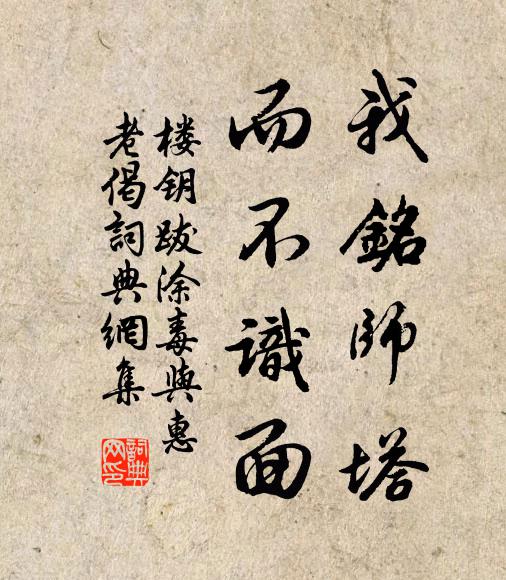 我銘師塔
而不識面
楼钥跋涂毒與惠
老偈詞典網集
詞典
网印